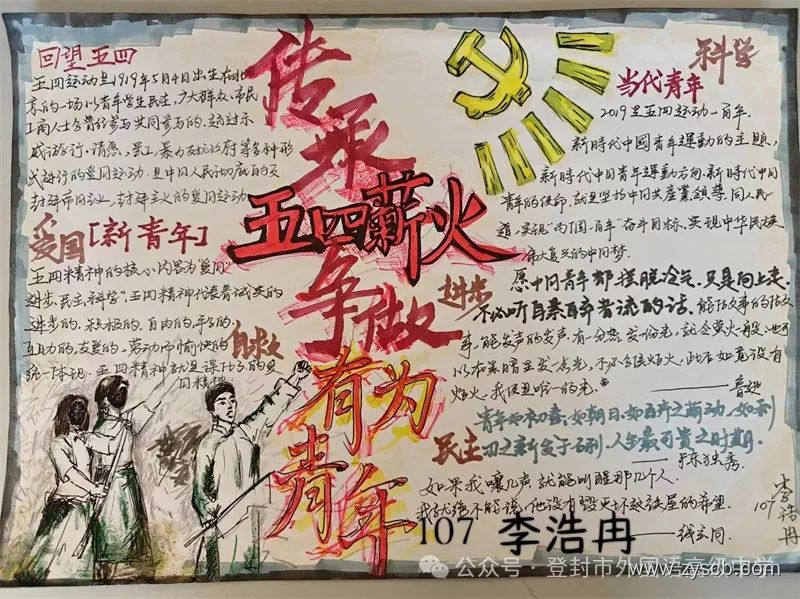 回望五四
五四运动是1919年5月4日出生在北
京的一场以青年学生民主,广大群众、市民
工商人士
威游行、请愿、罢工、暴力对抗政府等多种形
式进行的爱国运动.是中国人民彻底的反
封建主义的爱国运动
爱国[新青年]
五四精神的核心内容为"爱国
进步、民主、科学"。五四精神代表着诚实的
进步的、积极的、自由的、平等的、
互助的、友爱的、劳动而愉快的
统一体现.五四精神就是
自救
传承
五四薪火
争做
有为
青年
科学
当代青年
2019是五四运动一百年.
新時代中國青年運動的主題,
新时代中国青年運動方向.新時代中国
青年的使命,就是坚持中国共産黨領導同人民
一道,实现"两个一百年"奋斗目标,实现中华民族
伟大复兴的中国梦.
进步
愿中国青年都摆脱冷气,只是向上走,
不必听自暴自弃者流的话.能做事的做
事,能发声的发声.有一分热,发一份光,就令萤火一般,也可
以在黑暗里发一点光,不必等候炬火.此后如竟没有
炬火,我便是唯一的光."
——鲁迅
民主
青年如初春,如朝日,如百卉之萌动,如利
刃之新发于硎,人生最可贵之时期.
——陈独秀
如果我嚷几声就能叫醒那几个人.
我就绝不能说,他没有毁灭坏这铁屋的希望.
——钱玄同
李浩冉
107
107 李浩冉
公众号·登封市外国语高级中学
www.zyscb.com